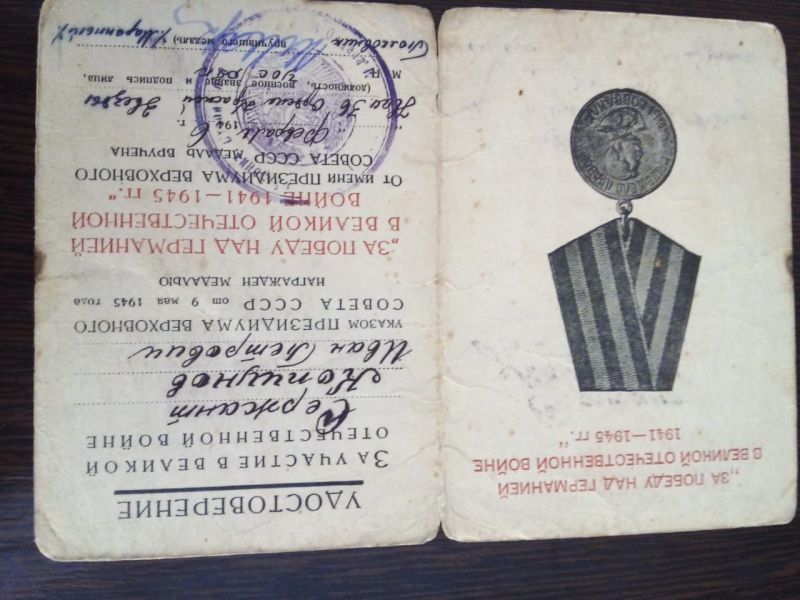 „ЗА ПОБЕДУ НАД ГЕРМАНИЕЙ
В ВЕЛИКОЙ ОТЕЧЕСТВЕННОЙ ВОЙНЕ
1941—1945 гг.“
УДОСТОВЕРЕНИЕ
ЗА УЧАСТИЕ В ВЕЛИКОЙ
ОТЕЧЕСТВЕННОЙ ВОЙНЕ
Сержант
Иван Петрович
УКАЗОМ ПРЕЗИДИУМА ВЕРХОВНОГО
СОВЕТА СССР от 9 мая 1945 года
НАГРАЖДЕН МЕДАЛЬЮ
„ЗА ПОБЕДУ НАД ГЕРМАНИЕЙ
В ВЕЛИКОЙ ОТЕЧЕСТВЕННОЙ
ВОЙНЕ 1941—1945 гг.“
От имени ПРЕЗИДИУМА ВЕРХОВНОГО
СОВЕТА СССР МЕДАЛЬ ВРУЧЕНА
февраля 194 6 г.
Красной Звезды
(должность, военное звание и подпись лица,
М. П.
вручившего медаль)